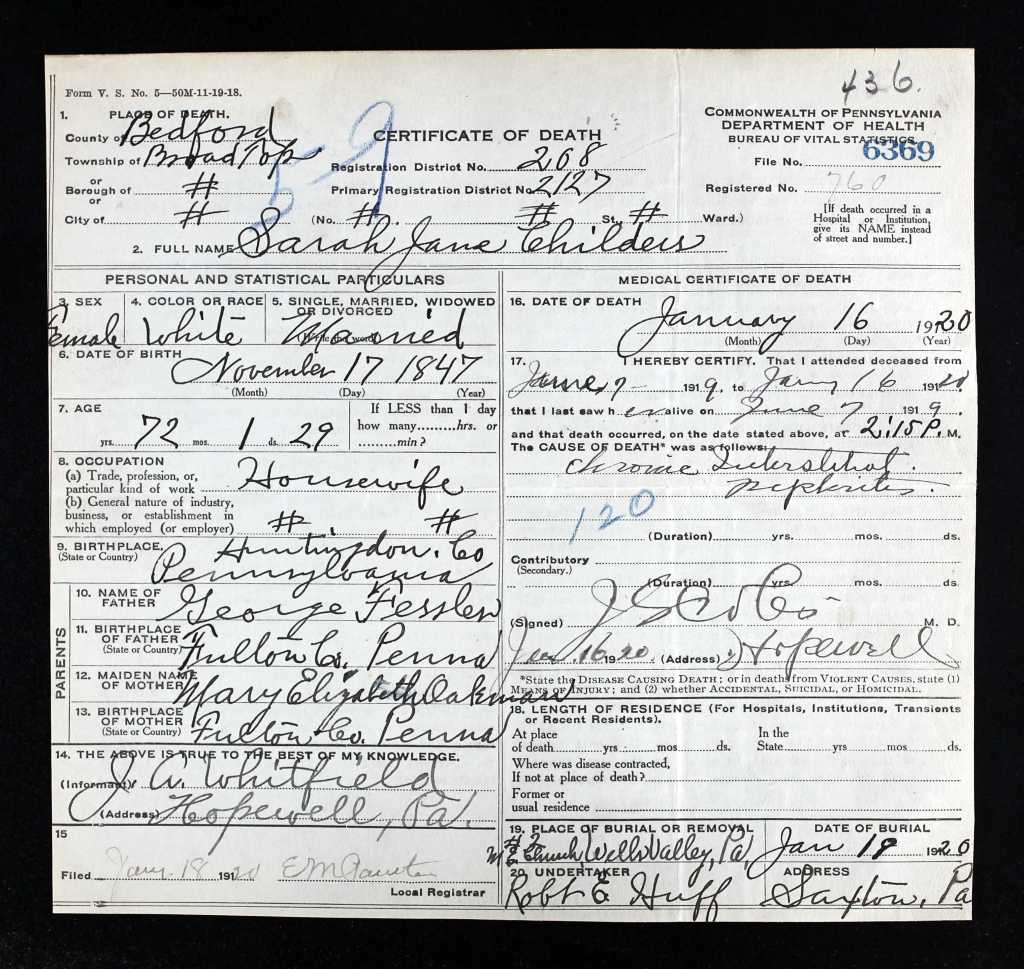 436.
Form V. S. No. 5—50M-11-19-18.
1. PLACE OF DEATH.
County of Bedford
Township of Broad Top
or
Borough of #
or
City of #
5-9
CERTIFICATE OF DEATH
Registration District No. 268
Primary Registration District No. 2127
(No. #. # St., # Ward.)
COMMONWEALTH OF PENNSYLVANIA
DEPARTMENT OF HEALTH
BUREAU OF VITAL STATISTICS
File No. 6369
Registered No. 760
[If death occurred in a
Hospital or Institution,
give its NAME instead
of street and number.]
2. FULL NAME Sarah Jane Childers
PERSONAL AND STATISTICAL PARTICULARS
3. SEX
Female
4. COLOR OR RACE
White
5. SINGLE, MARRIED, WIDOWED
OR DIVORCED
Married
(Write the word)
6. DATE OF BIRTH
November 17 1847
(Month) (Day) (Year)
7. AGE
yrs. 72 mos. 1 ds. 29
If LESS than 1 day
how many.........hrs. or
.........min?
8. OCCUPATION
(a) Trade, profession, or,
particular kind of work Housewife
(b) General nature of industry,
business, or establishment in
which employed (or employer) # #
9. BIRTHPLACE.
(State or Country)
Huntingdon. Co
Pennsylvania
PARENTS
10. NAME OF
FATHER George Fessler
11. BIRTHPLACE
OF FATHER
(State or Country) Fulton Co. Penna
12. MAIDEN NAME
OF MOTHER Mary Elizabeth Oakman
13. BIRTHPLACE
OF MOTHER
(State or Country) Fulton Co. Penna
14. THE ABOVE IS TRUE TO THE BEST OF MY KNOWLEDGE.
(Informant) J. A. Whitfield
(Address) Hopewell, Pa.
15
Filed Jany. 18 1920 E M
Local Registrar
MEDICAL CERTIFICATE OF DEATH
16. DATE OF DEATH
January 16 1920
(Month) (Day) (Year)
17. I HEREBY CERTIFY, That I attended deceased from
June, 7- 1919. to Jany 16 1920
that I last saw her alive on June 7 1919.
and that death occurred, on the date stated above, at 2:15 P. M.
The CAUSE OF DEATH* was as follows:
Chronic Interstitial.
nephritis.
120
(Duration) yrs. mos. ds.
Contributory
(Secondary.)
(Duration) yrs. mos. ds.
(Signed) M. D.
Jan. 16 1920 (Address) Hopewell
*State the DISEASE CAUSING DEATH; or in deaths from VIOLENT CAUSES, state (1)
MEANS OF INJURY; and (2) whether ACCIDENTAL, SUICIDAL, or HOMICIDAL.
18. LENGTH OF RESIDENCE (For Hospitals, Institutions, Transients
or Recent Residents).
At place
of death yrs. mos. ds.
In the
State yrs. mos. ds.
Where was disease contracted,
If not at place of death?
Former or
usual residence
19. PLACE OF BURIAL OR REMOVAL
#2
M E Church Wells Valley, Pa
DATE OF BURIAL
Jan 19 1920
20. UNDERTAKER
Robt E Huff
ADDRESS
Saxton, Pa